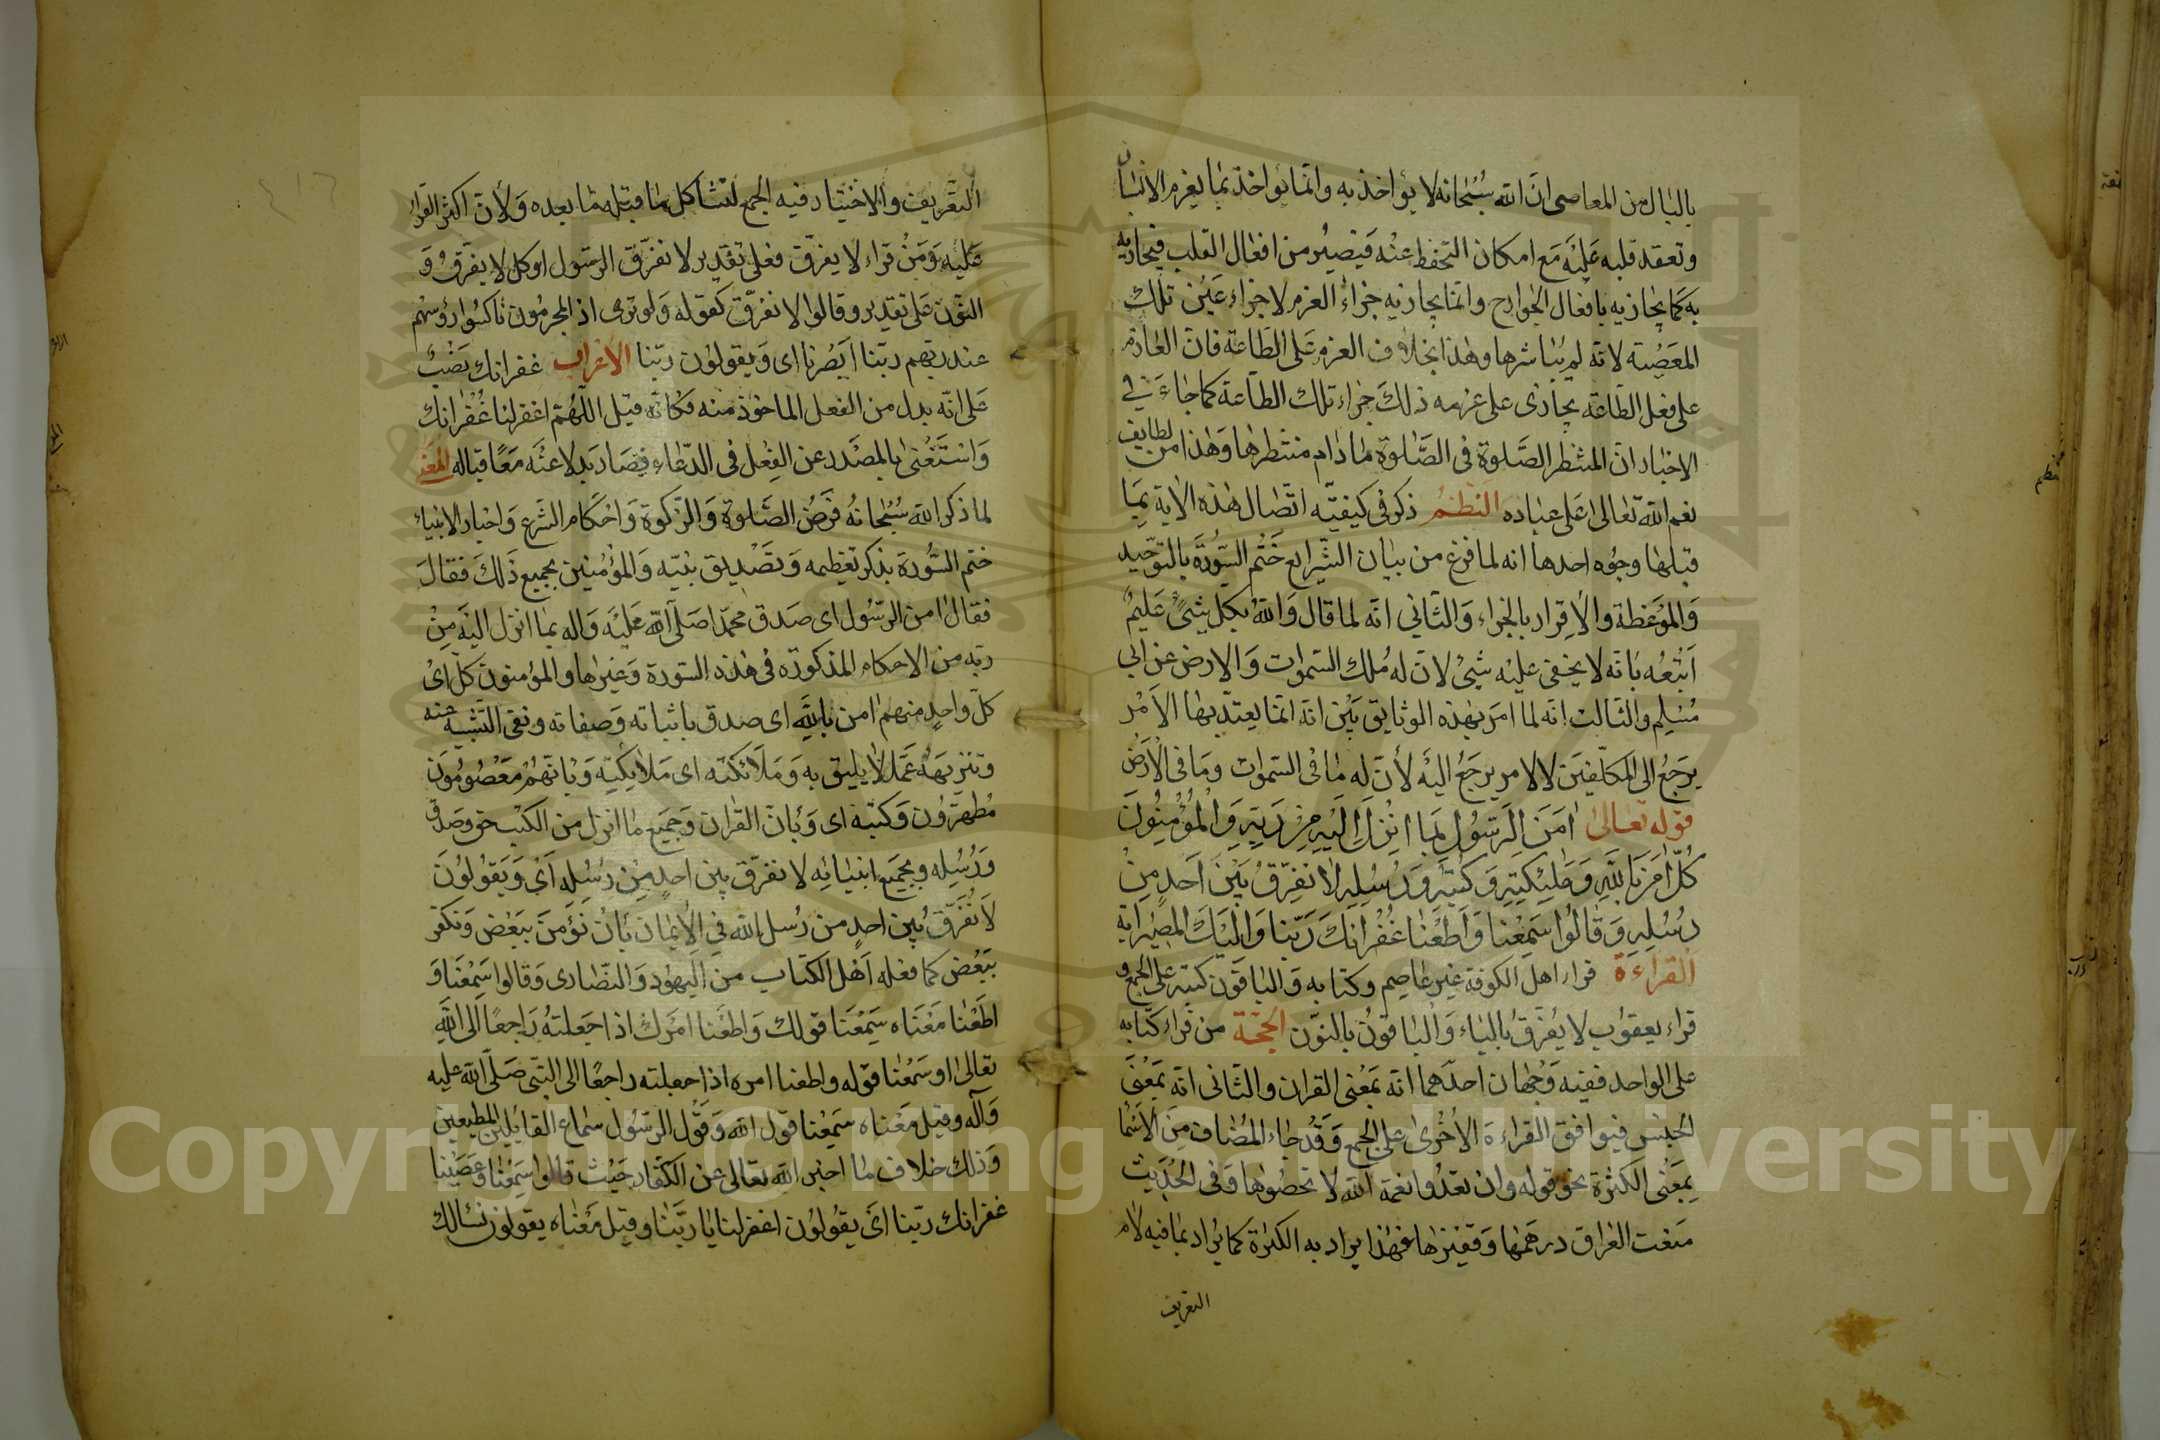 بالبال من المعاصى ان الله سبحانه لا يؤاخذ به وانما يؤاخذ بما يعزم الانسان
وتعقد قلبه عليه مع امكان التحفظ عنه فيصير من افعال القلب فيجازيه
به كما يجازيه بافعال الجوارح وانما يجازيه جزاء العزم لا جزاء عين تلك
المعصية لانه لم يباشرها وهذا بخلاف العزم على الطاعة فان العازم
على فعل الطاعة يجازى على عزمه ذلك جزاء تلك الطاعة كما جاء في
الاخبار ان المنتظر الصلوة فى الصلوة ما دام منتظرها وهذا من لطايف
نعم الله تعالى على عباده النظم ذكر فى كيفية اتصال هذه الاية بما
قبلها وجوه احدها انه لما فرغ من بيان الشرايع ختم السورة بالتوحيد
والموعظة والاقرار بالجزاء والثاني انه لما قال والله بكل شئ عليم
اتبعه بانه لا يخفى عليه شئ لان له ملك السموات والارض عن ابى
مسلم والثالث انه لما امر بهذه الوثايق بين انه انما يعتد بها الامر
يرجع الى المكلفين لا لامر يرجع اليه لأن له ما فى السموات وما فى الارض
قوله تعالى امن الرسول بما انزل اليه من ربه والمؤمنون
كل امن بالله وملئكته وكتبه ورسله لا نفرق بين احد من
رسله وقالوا سمعنا واطعنا غفرانك ربنا واليك المصير اية
القراءة قراء اهل الكوفة غير عاصم وكتابه والباقون كتبه على الجمع و
قراء يعقوب لا يفرق بالياء والباقون بالنون الحجة من قراء كتابه
على الواحد ففيه وجهان احدهما انه بمعنى القران والثانى انه بمعنى
الجنس فيوافق القراءة الأخرى على الجمع وقد جاء المضاف من الاسما
بمعنى الكثرة نحو قوله وان تعدوا نعمة الله لا تحصوها وفى الحديث
منعت العراق درهمها وقفيزها فهذا يراد به الكثرة كما يراد بما فيه لام
التعريف
التعريف والاختيار فيه الجمع لتشاكل ما قبله ما بعده ولأن اكثر القراء
عليه ومن قراء لا يفرق فعلى تقدير لا نفرق الرسول او كل لا يفرق و
النون على تقدير وقالوا لا نفرق كقوله ولو ترى اذ المجرمون ناكسوا رؤسهم
عند ربهم ربنا ابصرنا اى ويقولون ربنا الاعراب غفرانك نصب
على انه بدل من الفعل الماخوذ منه فكانه قيل اللهم اغفر لنا غفرانك
واستغنى بالمصدر عن الفعل فى الدعاء فصار بدلا عنه معاقبا له المعنى
لما ذكر الله سبحانه فرض الصلوة والزكوة واحكام الشرع واخبار الانبياء
ختم السورة بذكر تعظيمه وتصديق نبيه والمؤمنين بجميع ذلك فقال
فقال امن الرسول اى صدق محمد صلى الله عليه واله بما انزل اليه من
ربه من الاحكام المذكورة فى هذه السورة وغيرها والمؤمنون كل اى
كل واحد منهم امن بالله اى صدق باثباته وصفاته ونفى التشبيه عنه
وتنزيهه عما لا يليق به وملائكته اى ملائكته وبانهم معصومون
مطهرون وكتبه اى وبان القران وجميع ما انزل من الكتب حق وصدق
ورسله وبجميع انبيائه لا نفرق بين احد من رسله اى ويقولون
لا نفرق بين احد من رسل الله في الايمان بان نؤمن ببعض ونكفر
ببعض كما فعله اهل الكتاب من اليهود والنصارى وقالوا سمعنا و
اطعنا معناه سمعنا قولك واطعنا امرك اذا جعلته راجعا الى الله
تعالى او سمعنا قوله واطعنا امره اذا جعلته راجعا الى النبى صلى الله عليه
وآله وقيل معناه سمعنا قول الله وقول الرسول سماع القائلين المطيعين
وذلك خلاف ما اخبر الله تعالى عن الكفار حيث قالوا سمعنا وعصينا
غفرانك ربنا اى يقولون اغفر لنا يا ربنا وقيل معناه يقولون نسالك
Copyright © King Saud University